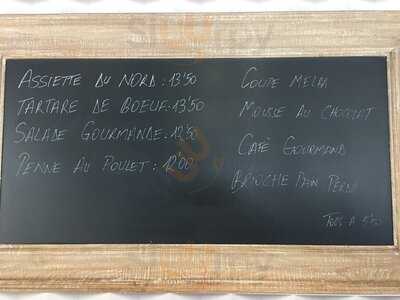 ASSIETTE DU NORD : 13'50
TARTARE DE BOEUF : 13'50
SALADE GOURMANDE : 12'50
PENNE AU POULET : 12'00
COUPE MELBA
MOUSSE AU CHOCOLAT
CAFÉ GOURMAND
BRIOCHE PAIN PERDU
TOUS A 5'50